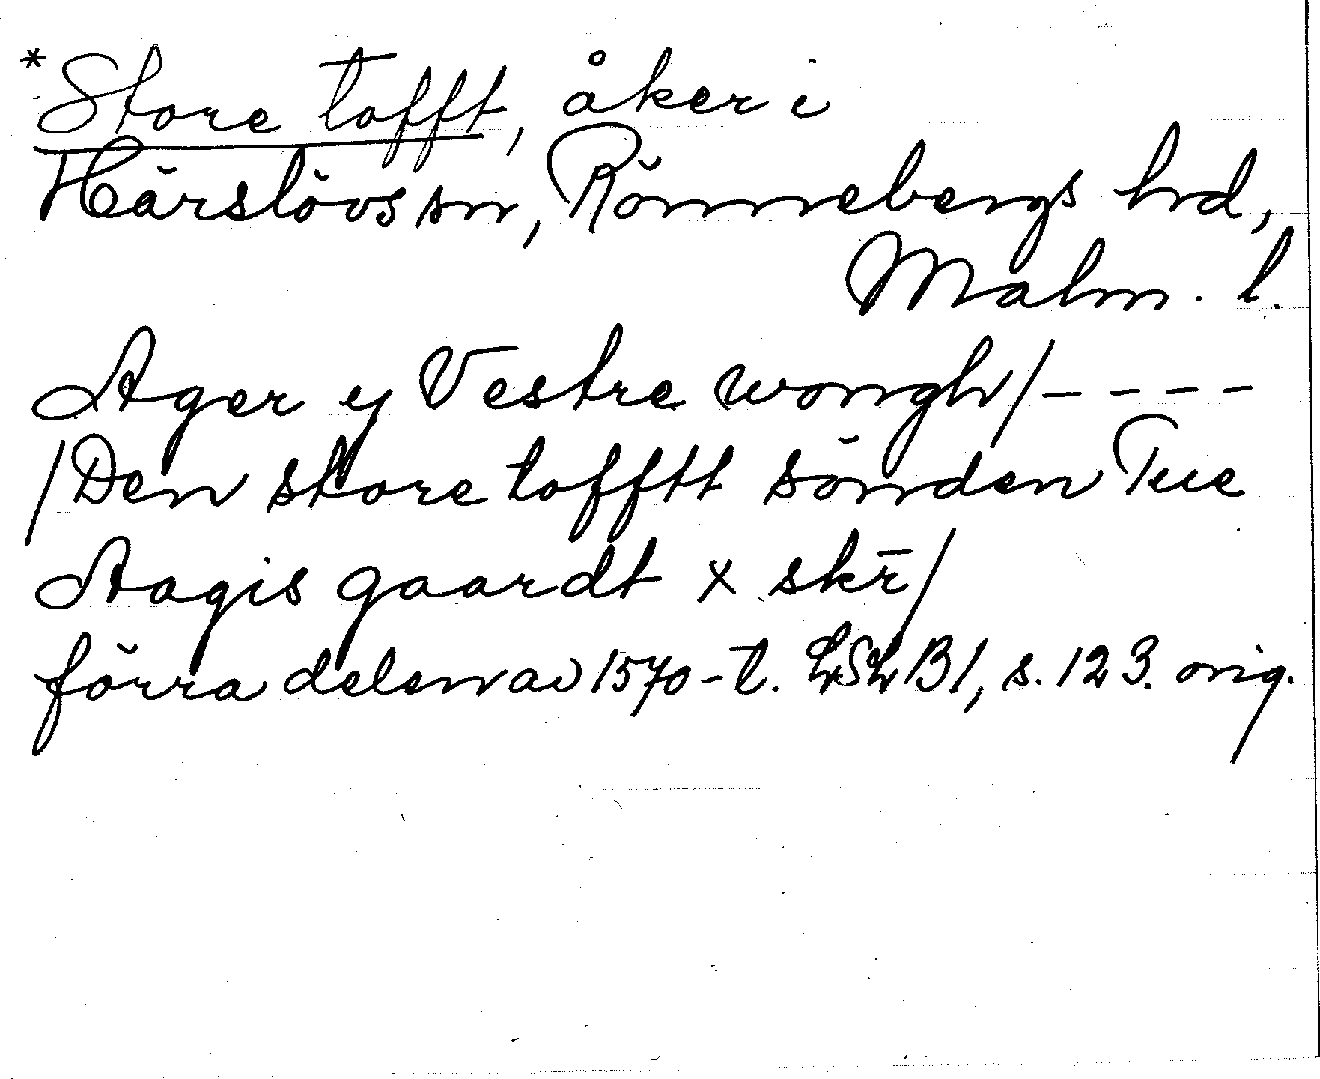 *Store tofft, åker i
Härslövs sn, Rönnebergs hrd,
Malm. l.
Ager y Vestre wongh/----
/Den store tofftt sönden Tue
Aagis gaardt x skr̄/
förra delen av 1570-t. LSLB1, s. 123. orig.